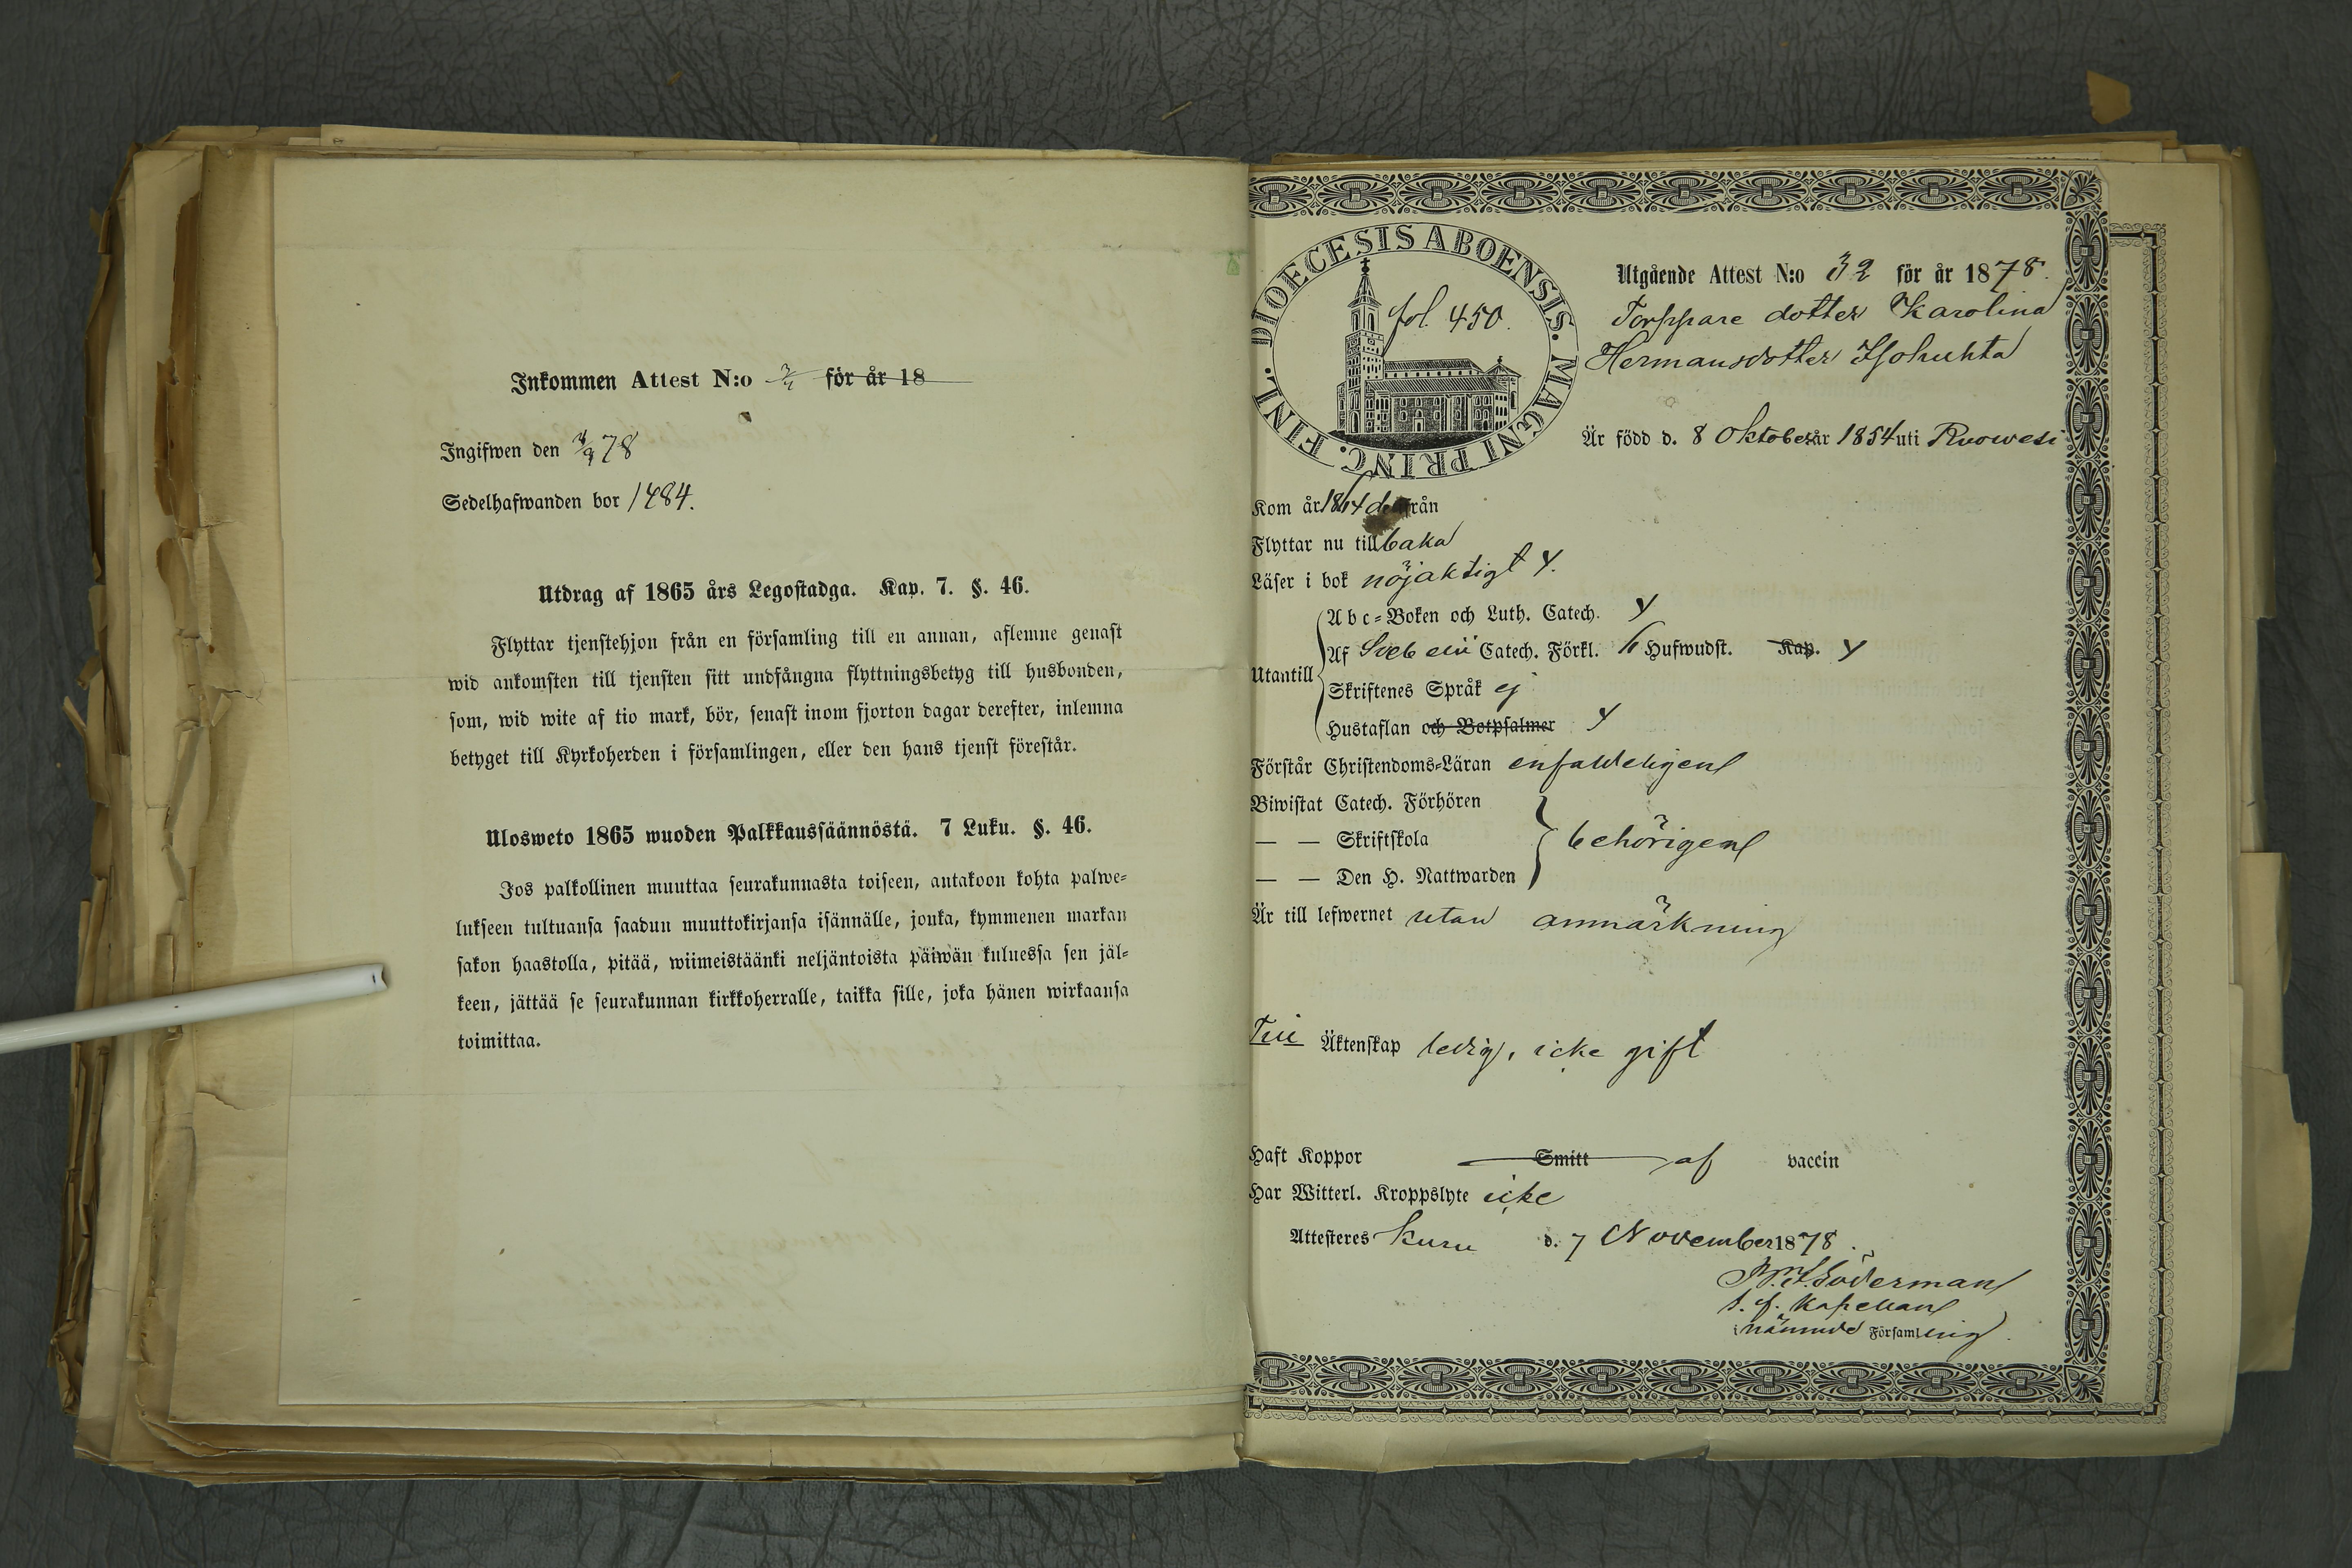 Inkommen Attest N:o för år 18
Ingifwen den 78
Sedelhafwanden bor 1484.
Utdrag af 1865 års Legostadga. Kap. 7. §. 46.
Flyttar tjenstehjon från en församling till en annan, aflemne genast
wid ankomsten till tjensten sitt undfångna flyttningsbetyg till husbonden,
som, wid wite af tio mark, bör, senast inom fjorton dagar derefter, inlemna
betyget till Kyrkoherden i församlingen, eller den hans tjenst förestår.
Ulosweto 1865 wuoden Palkkaussäännöstä. 7 Luku. §. 46.
Jos palkollinen muuttaa seurakunnasta toiseen, antakoon kohta palwe-
lukseen tultuansa saadun muuttokirjansa isännälle, jonka, kymmenen markan
sakon haastolla, pitää, wiimeistäänki neljäntoista päiwän kuluessa sen jäl-
keen, jättää se seurakunnan kirkkoherralle, taikka sille, joka hänen wirkaansa
toimittaa.
DIOECESIS ABOENSIS. MAGNI PRINC. FINL.
fol. 450.
Utgående Attest N:o 32 för år 1878.
Torppare dotter Karolina
Hermansdotter Isohuhta
Är född d. 8 Oktober år 1854 uti Ruowesi
Kom år från
Flyttar nu tillbaka
Läser i bok nöjaktigt y.
Utantill
Abc-Boken och Luth. Catech. y
Af Sveb Catech. Förkl. 6 Hufwudst. Kap. y
Skriftenes Språk ej
Hustaflan och Botpsalmer y
Förstår Christendoms-Läran enfaldeligen
Biwistat Catech. Förhören
— — Skriftskola behörigen
— — Den H. Nattwarden
Är till lefwernet utan anmärkning
Till Äktenskap ledig, icke gift
Haft Koppor Smitt af vaccin
Har Witterl. Kroppslyte icke
Attesteres Kuru d. 7 November 1878.
Söderman
t. f. Kapellan
i nämnde Församling.